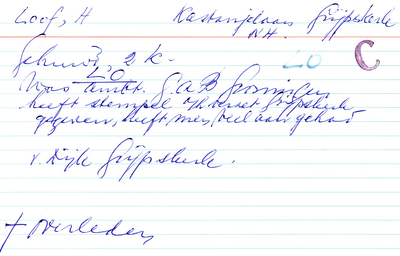 Loof, H Kastanjelaan Grijpskerke
NH. LO C
Gehuwd, 2 k.
LO
Was ambt. G.A.B Groningen
heeft stempel o/h verzet Grijpskerk
gegeven, heeft mes veel aan gehad
v. Dijk Grijpskerk.
† overleden